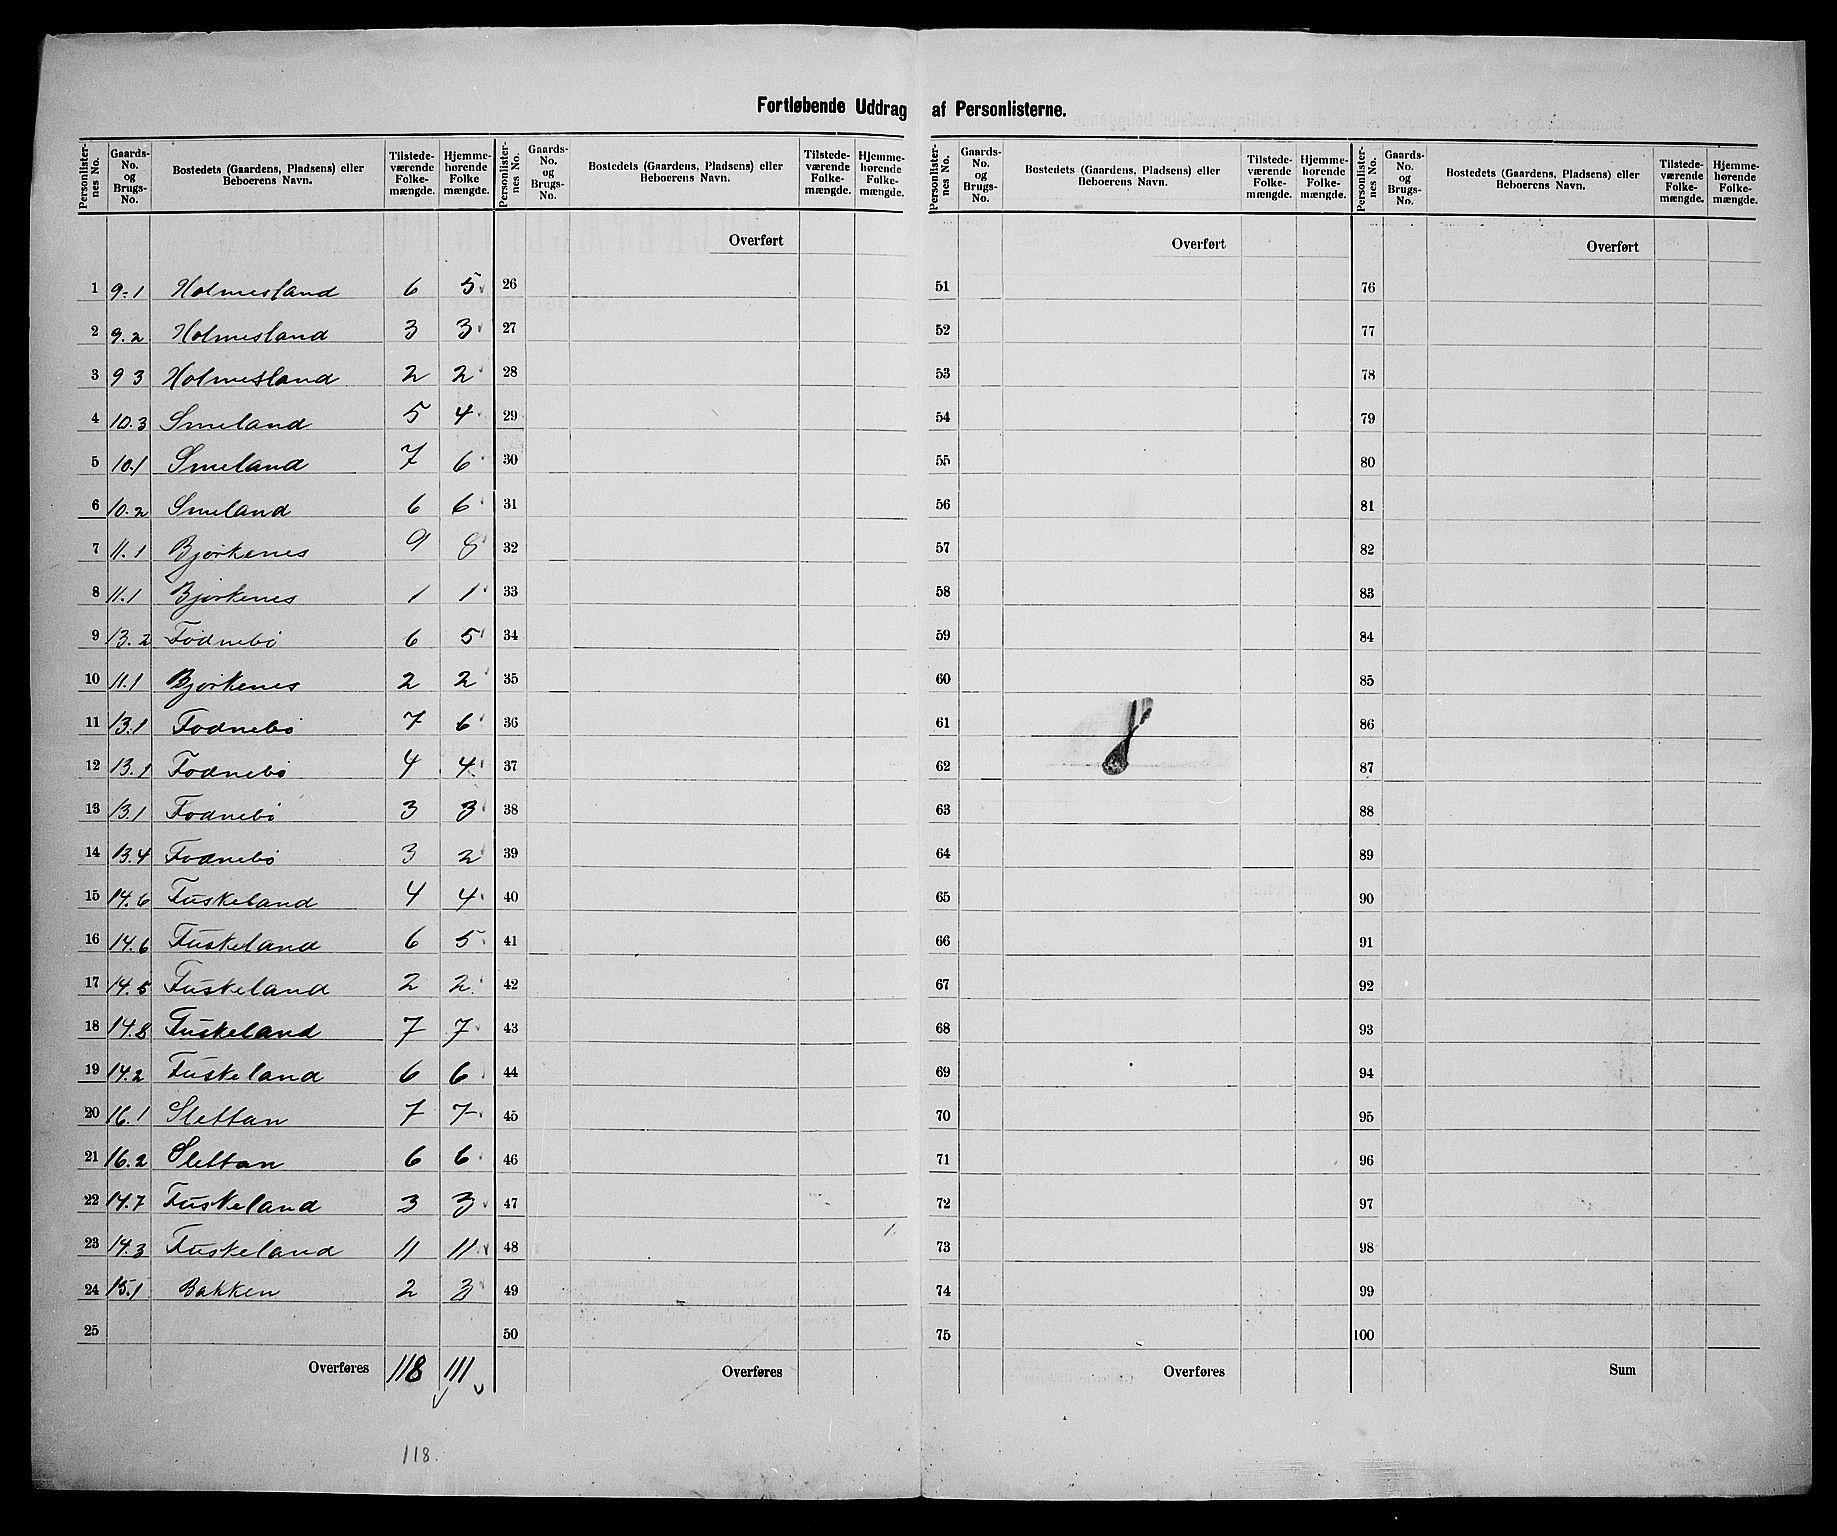 Fortløbende Uddrag af Personlisterne.
Personlister-nes No. | Gaards-No. og Brugs-No. | Bostedets (Gaardens, Pladsens) eller Beboerens Navn. | Tilstede-værende Folke-mængde. | Hjemme-hørende Folke mængde.
1 9-1 Holmesland 6 5
2 9.2 Holmesland 3 3
3 9 3 Holmesland 2 2
4 10.3 Smeland 5 4
5 10.1 Smeland 7 6
6 10.2 Smeland 6 6
7 11.1 Bjørkenes 9 8
8 11.1 Bjørkenes 1 1
9 13.2 Fodnebø 6 5
10 11.1 Bjørkenes 2 2
11 13.1 Fodnebø 7 6
12 13.1 Fodnebø 4 4
13 13.1 Fodnebø 3 3
14 13.4 Fodnebø 3 2
15 14.6 Fuskeland 4 4
16 14.6 Fuskeland 6 5
17 14.5 Fuskeland 2 2
18 14.8 Fuskeland 7 7
19 14.2 Fuskeland 6 6
20 16.1 Slettan 7 7
21 16.2 Slettan 6 6
22 14.7 Fuskeland 3 3
23 14.3 Fuskeland 11 11
24 15.1 Bakken 2 3
25
Overføres 118 111
118.
Personlister-nes No. | Gaards-No. og Brugs-No. | Bostedets (Gaardens, Pladsens) eller Beboerens Navn. | Tilstede-værende Folke-mængde. | Hjemme-hørende Folke-mængde.
Overført
26
27
28
29
30
31
32
33
34
35
36
37
38
39
40
41
42
43
44
45
46
47
48
49
50
Overføres
Personlister-nes No. | Gaards-No. og Brugs-No. | Bostedets (Gaardens, Pladsens) eller Beboerens Navn. | Tilstede-værende Folke-mængde. | Hjemme-hørende Folke-mængde.
Overført
51
52
53
54
55
56
57
58
59
60
61
62
63
64
65
66
67
68
69
70
71
72
73
74
75
Overføres
Personlister-nes No. | Gaards-No. og Brugs-No. | Bostedets (Gaardens, Pladsens) eller Beboerens Navn. | Tilstede-værende Folke-mængde. | Hjemme-hørende Folke-mængde.
Overført
76
77
78
79
80
81
82
83
84
85
86
87
88
89
90
91
92
93
94
95
96
97
98
99
100
Sum